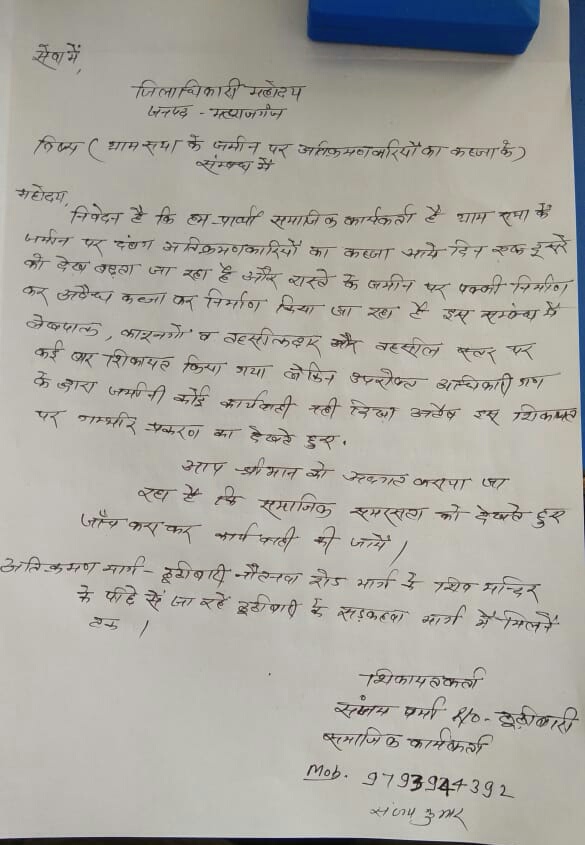 सेवा में,
जिलाधिकारी महोदय
जनपद - महराजगंज
विषय ( ग्राम सभा के जमीन पर अतिक्रमणकारियों का कब्जा के )
संम्बन्ध में
महोदय,
निवेदन है कि हम प्रार्थी समाजिक कार्यकर्ता है ग्राम सभा के
जमीन पर दबंग अतिक्रमणकारियों का कब्जा आये दिन एक दूसरे
को देख बढ़ता जा रहा है और रास्ते के जमीन पर पक्की निर्माण
कर अवैध कब्जा कर निर्माण किया जा रहा है इस सम्बंध में
लेखपाल, कानूनगो व तहसीलदार और तहसील स्तर पर
कई बार शिकायत किया गया लेकिन उपरोक्त अधिकारी गण
के द्वारा जमीनी कोई कार्यवाही नही दिखा अतैव इस शिकायत
पर गम्भीर प्रकरण का देखते हुए.
आप श्रीमान को अवगत कराया जा
रहा है कि समाजिक समरसता को देखते हुए
जाँच करा कर कार्य वाही की जायें /
अतिक्रमण मार्ग - ठूठीबारी नौतनवा रोड मार्ग के शिव मन्दिर
के पीछे से जा रहे ठूठीबारी के सड़कहवा मार्ग में मिलने
तक /
शिकायतकर्ता
संजय वर्मा R/o - ठूठीबारी
समाजिक कार्यकर्ता
Mob. 9793944392
संजय कुमार